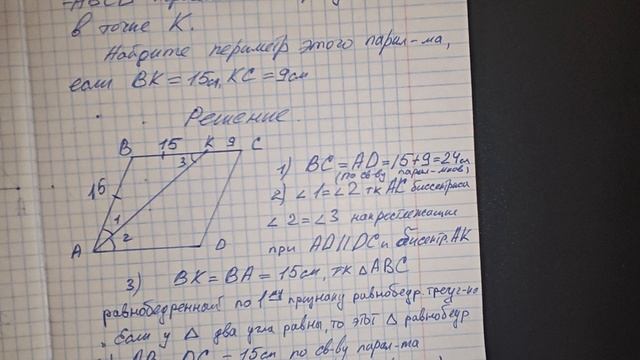 ABCD
в точке К.
Найдите периметр этого парал-ма,
если BK = 15см, KC = 9см
Решение.
B 15 K 9 C
3
15
1
2
A D
1) BC = AD = 15+9 = 24см
(по св-ву парал-мов)
2) ∠1 = ∠2 тк AK биссектриса
∠2 = ∠3 накрестлежащие
при AD||DC и бисектр. AK
3) BK = BA = 15см, тк △ABC
равнобедренный по 1ому признаку равнобедр. треуг-ка
„Если у △ два угла равны, то этот △ равнобедр
AB = DC = 15см по св-ву парал-ма